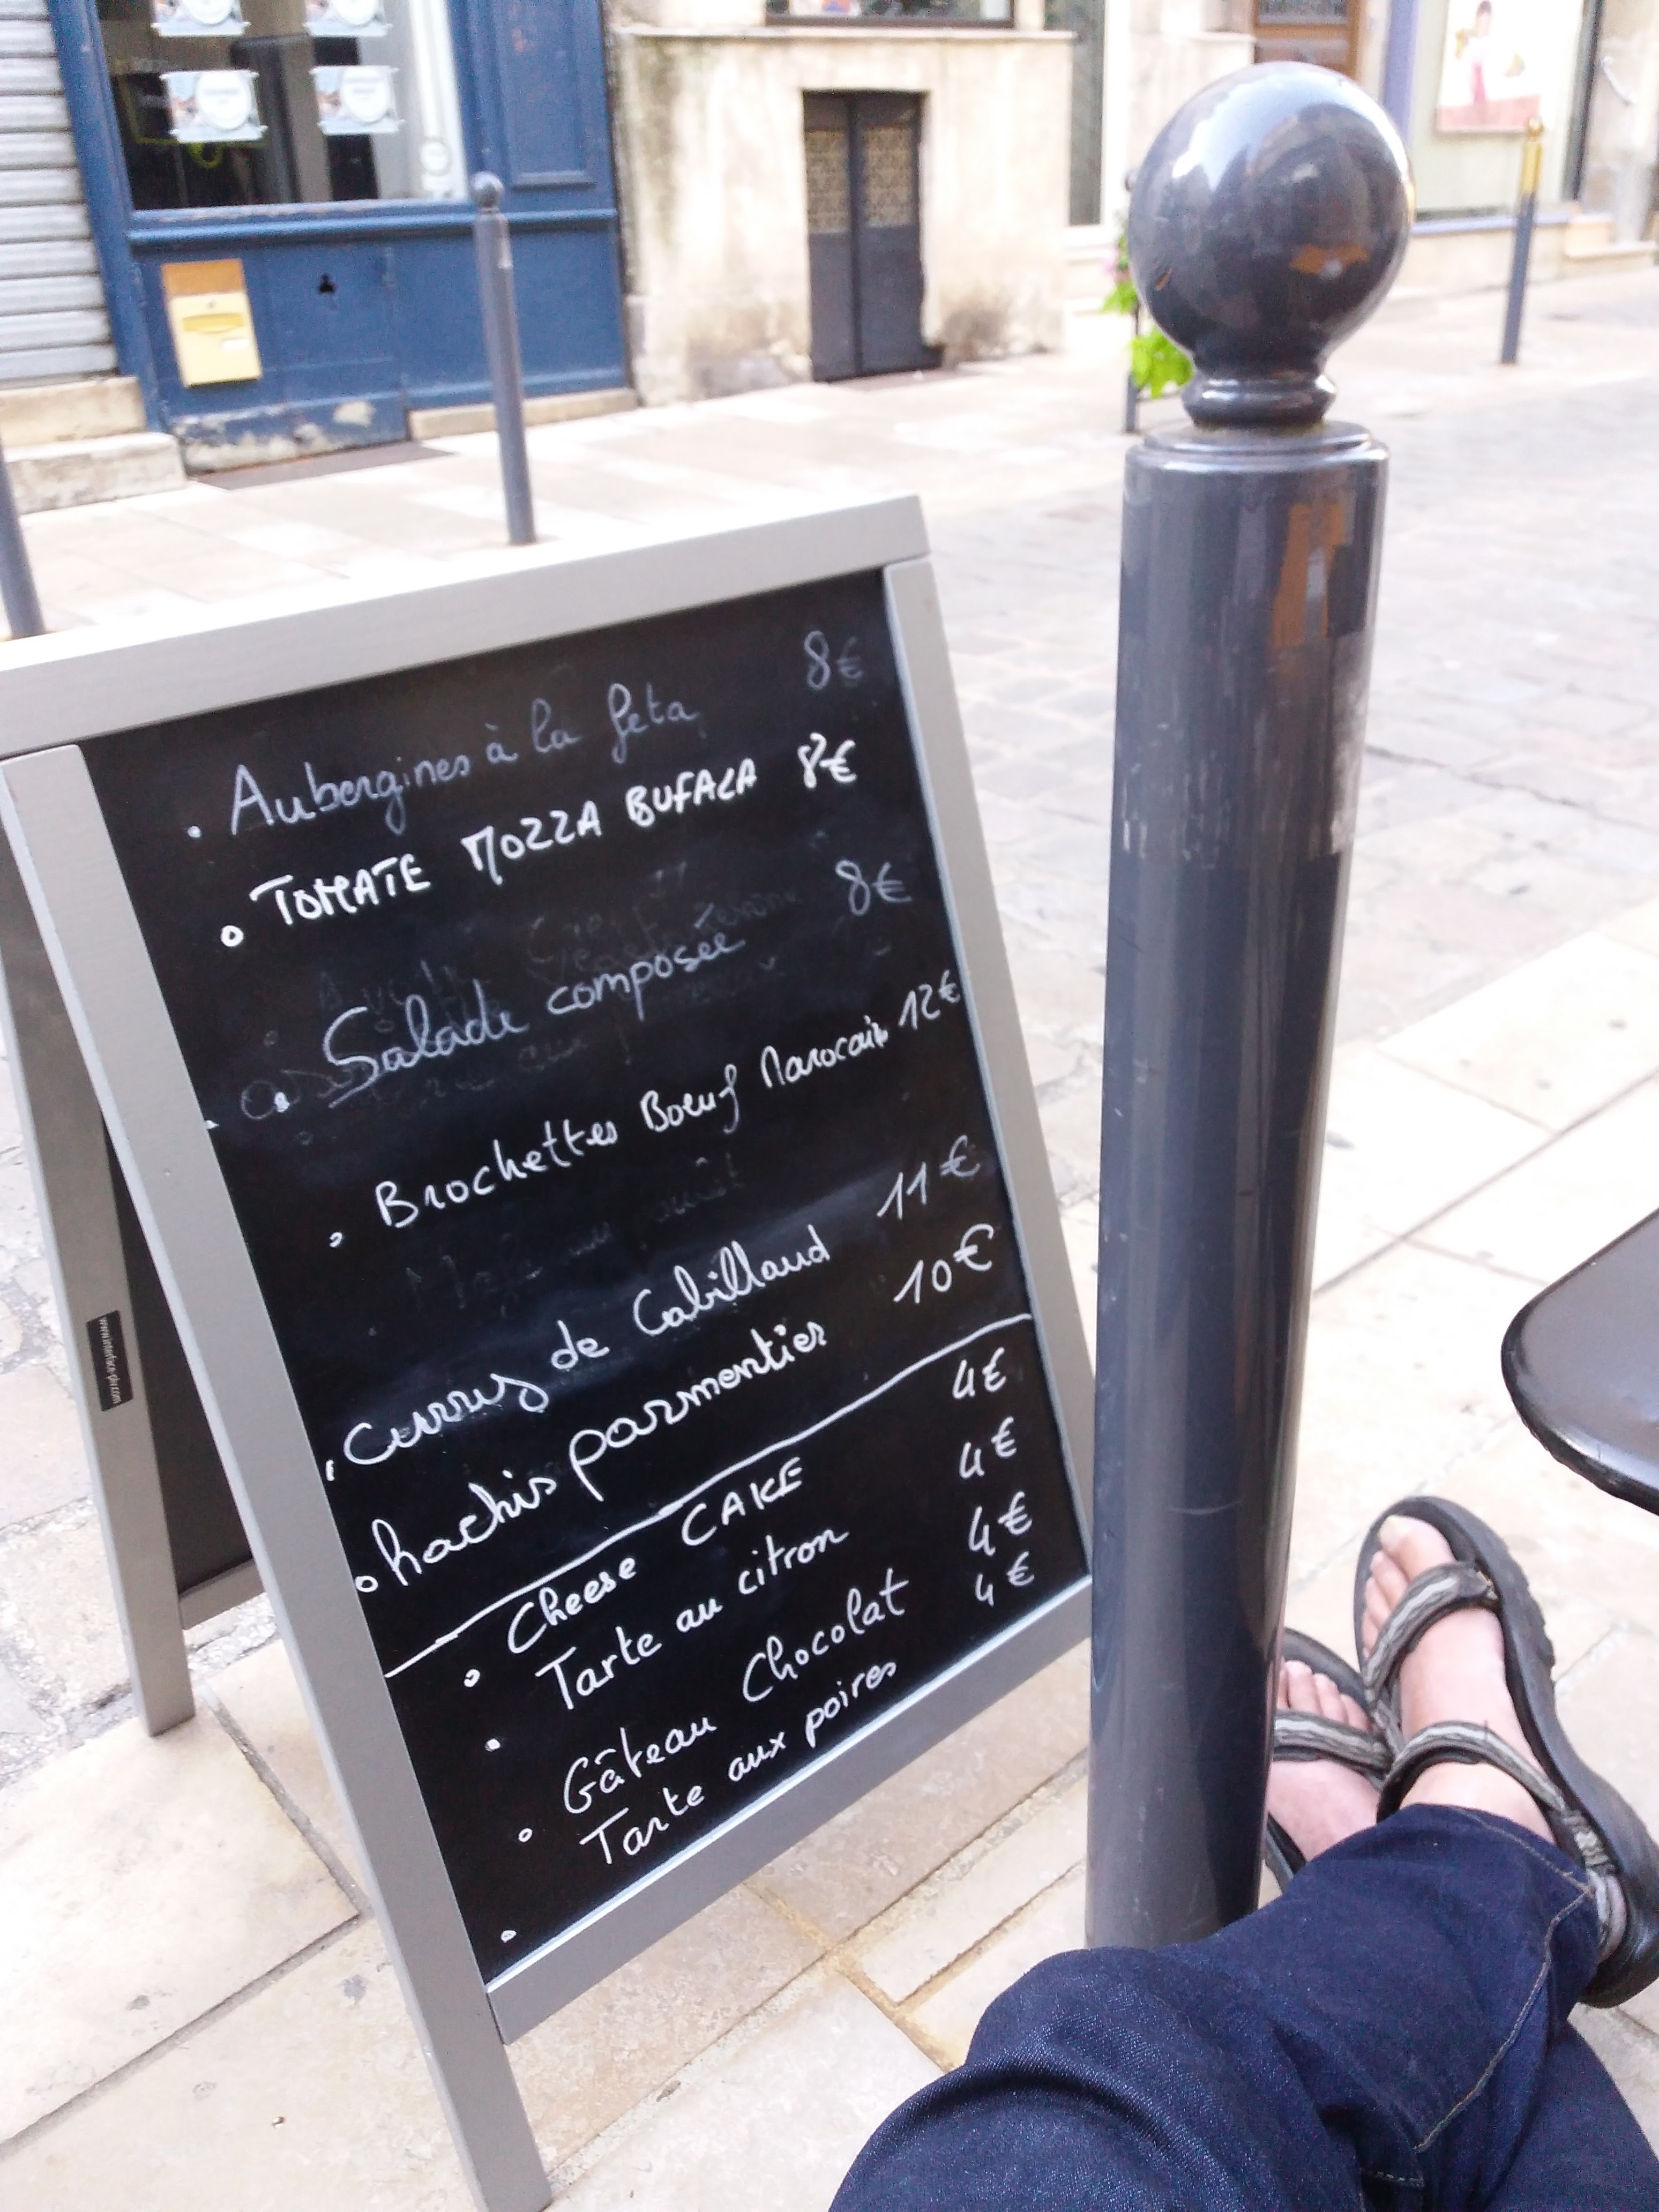 Aubergines à la feta 8€
TOMATE MOZZA BUFALA 8€
Salade composée 8€
Brochettes Boeuf Marocain 12€
curry de Cabillaud 11€
hachis parmentier 10€
Cheese CAKE 4€
Tarte au citron 4€
Gâteau Chocolat 4€
Tarte aux poires 4€